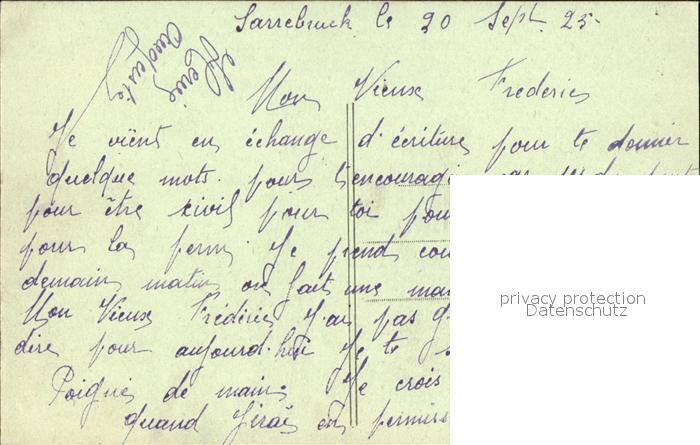 Sarrebruck le 20 Sept. 25-
Mon Vieux Frederic
Je vient en échange d'écriture pour te donner
quelque mots. pours t'encourage
pour être sivil pour toi pou
pour la ferm. Je prend cou
demain matin on fait une ma
Mon Vieux Fréderic J'ai pas g
dire pour aujourd.hui Je te s
Poignés de mains Je crois
quand Jirai en permis
privacy protection
Datenschutz